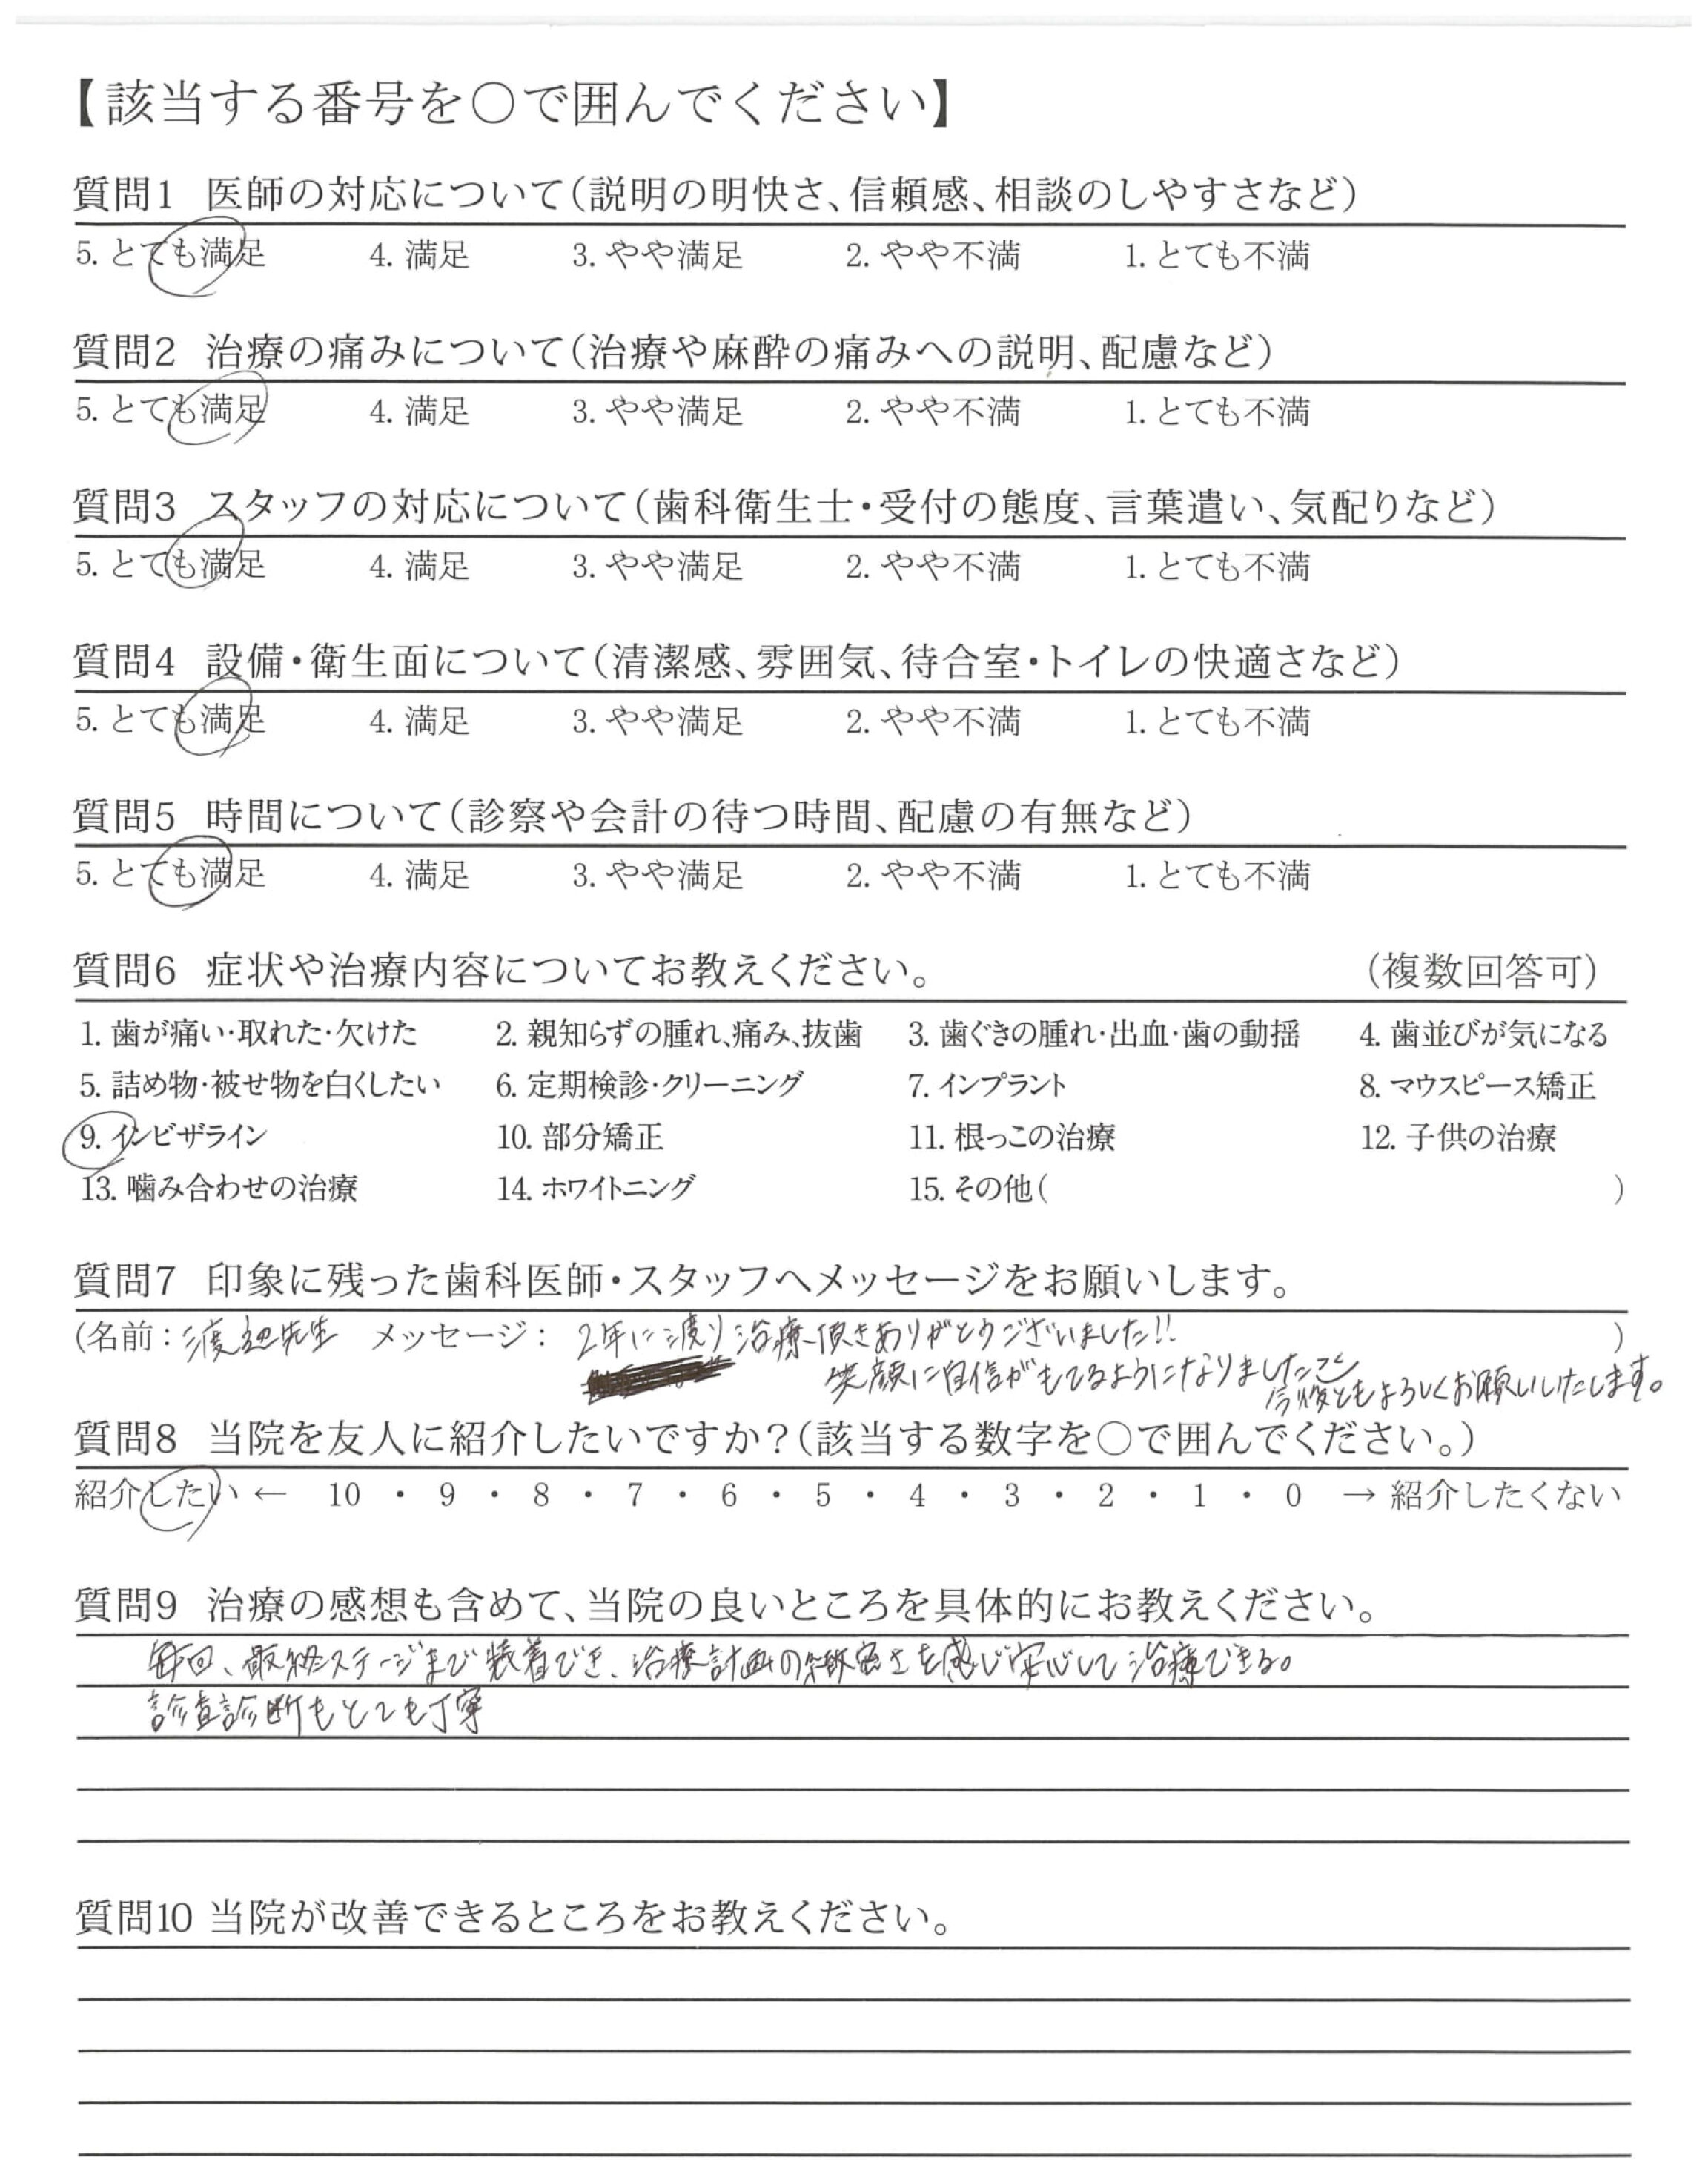 【該当する番号を○で囲んでください】
質問1 医師の対応について(説明の明快さ、信頼感、相談のしやすさなど)
5. とても満足 4. 満足 3. やや満足 2. やや不満 1. とても不満
質問2 治療の痛みについて(治療や麻酔の痛みへの説明、配慮など)
5. とても満足 4. 満足 3. やや満足 2. やや不満 1. とても不満
質問3 スタッフの対応について(歯科衛生士・受付の態度、言葉遣い、気配りなど)
5. とても満足 4. 満足 3. やや満足 2. やや不満 1. とても不満
質問4 設備・衛生面について(清潔感、雰囲気、待合室・トイレの快適さなど)
5. とても満足 4. 満足 3. やや満足 2. やや不満 1. とても不満
質問5 時間について(診察や会計の待つ時間、配慮の有無など)
5. とても満足 4. 満足 3. やや満足 2. やや不満 1. とても不満
質問6 症状や治療内容についてお教えください。 (複数回答可)
1. 歯が痛い・取れた・欠けた 2. 親知らずの腫れ、痛み、抜歯 3. 歯ぐきの腫れ・出血・歯の動揺 4. 歯並びが気になる
5. 詰め物・被せ物を白くしたい 6. 定期検診・クリーニング 7. インプラント 8. マウスピース矯正
9. インビザライン 10. 部分矯正 11. 根っこの治療 12. 子供の治療
13. 噛み合わせの治療 14. ホワイトニング 15. その他( )
質問7 印象に残った歯科医師・スタッフへメッセージをお願いします。
(名前: 渡辺先生 メッセージ: 2年に渡り治療頂きありがとうございました!! )
笑顔に自信がもてるようになりました
今後ともよろしくお願いいたします。
質問8 当院を友人に紹介したいですか?(該当する数字を○で囲んでください。)
紹介したい ← 10 ・ 9 ・ 8 ・ 7 ・ 6 ・ 5 ・ 4 ・ 3 ・ 2 ・ 1 ・ 0 → 紹介したくない
質問9 治療の感想も含めて、当院の良いところを具体的にお教えください。
毎回、最終ステージまで装着でき、治療計画の緻密さを感じ安心して治療できる。
診査診断もとても丁寧
質問10 当院が改善できるところをお教えください。